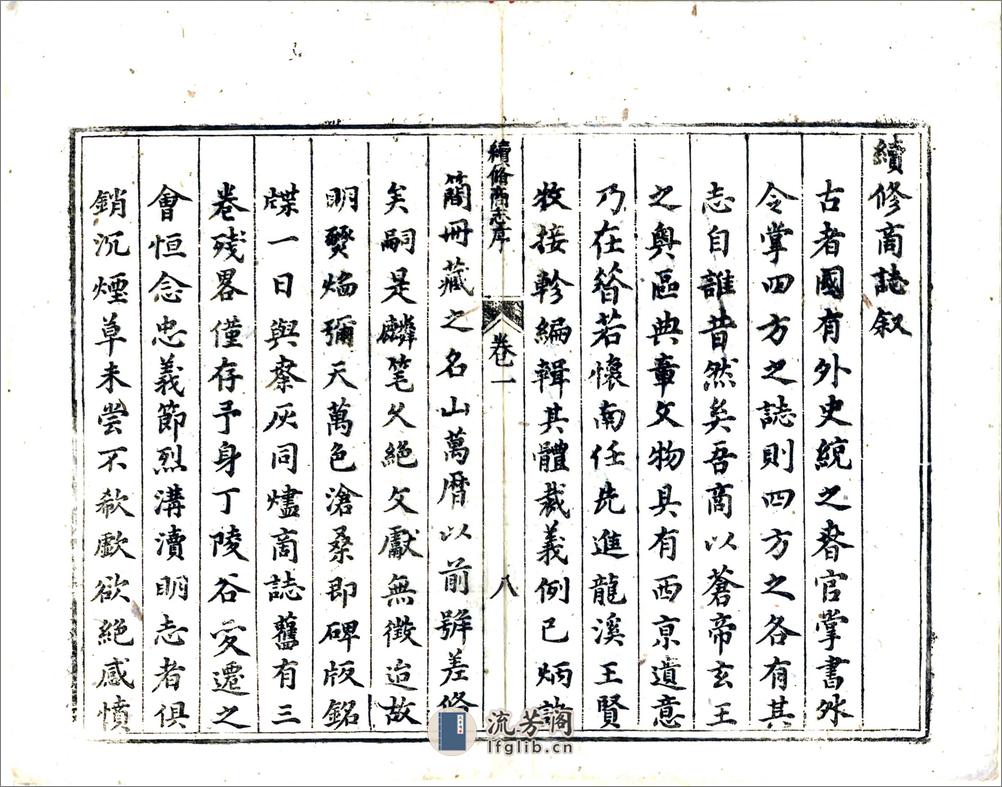 續修商誌叙
古者國有外史統之春官掌書外
令掌四方之誌則四方之各有其
志自誰昔然矣吾商以蒼帝玄王
之奧區典章文物具有西京遺意
乃在昝若懷南任先進龍溪王賢
牧接軫編輯其體裁義例已炳諸
續脩商志序 卷一 八
簡冊藏之名山萬曆以前號差俻
矣嗣是麟笔久絕文獻無徵迨故
明燹焔彌天萬色滄桑即碑版銘
牒一日與寮灰同燼商誌舊有三
卷殘畧僅存予身丁陵谷变遷之
會恒念忠義節烈溝瀆明志者俱
銷沉煙草未嘗不欷歔欲絕感憤
流芳閣
lfglib.cn